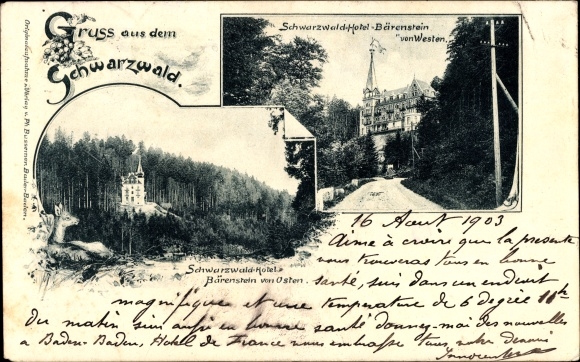 Gruss aus dem
Schwarzwald.
Schwarzwald-Hotel-Bärenstein
von Westen.
Originalaufnahme u. Verlag v. Ph. Bussemer, Baden-Baden.
Schwarzwald-Hotel-
Bärenstein von Osten.
16 Aout 1903
Aime à croire que la presente
vous trouveras tous en bonne
santé, suis dans un endroit
magnifique et une temperature de 6 degrée 10h
du matin suis aussi en bonne santé donnez-moi des nouvelles
a Baden-Baden, Hotel de France vous embrasse tous, votre